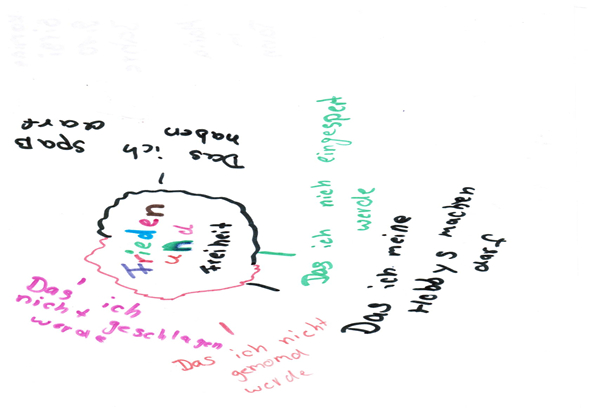 Frieden
und
Freiheit
Das ich
Spaß
haben
darf
Das ich nich eingespert
werde
Das ich meine
Hobbys machen
darf
Das ich nicht
gemomd
werde
Das ich
nicht geschlagen
werde